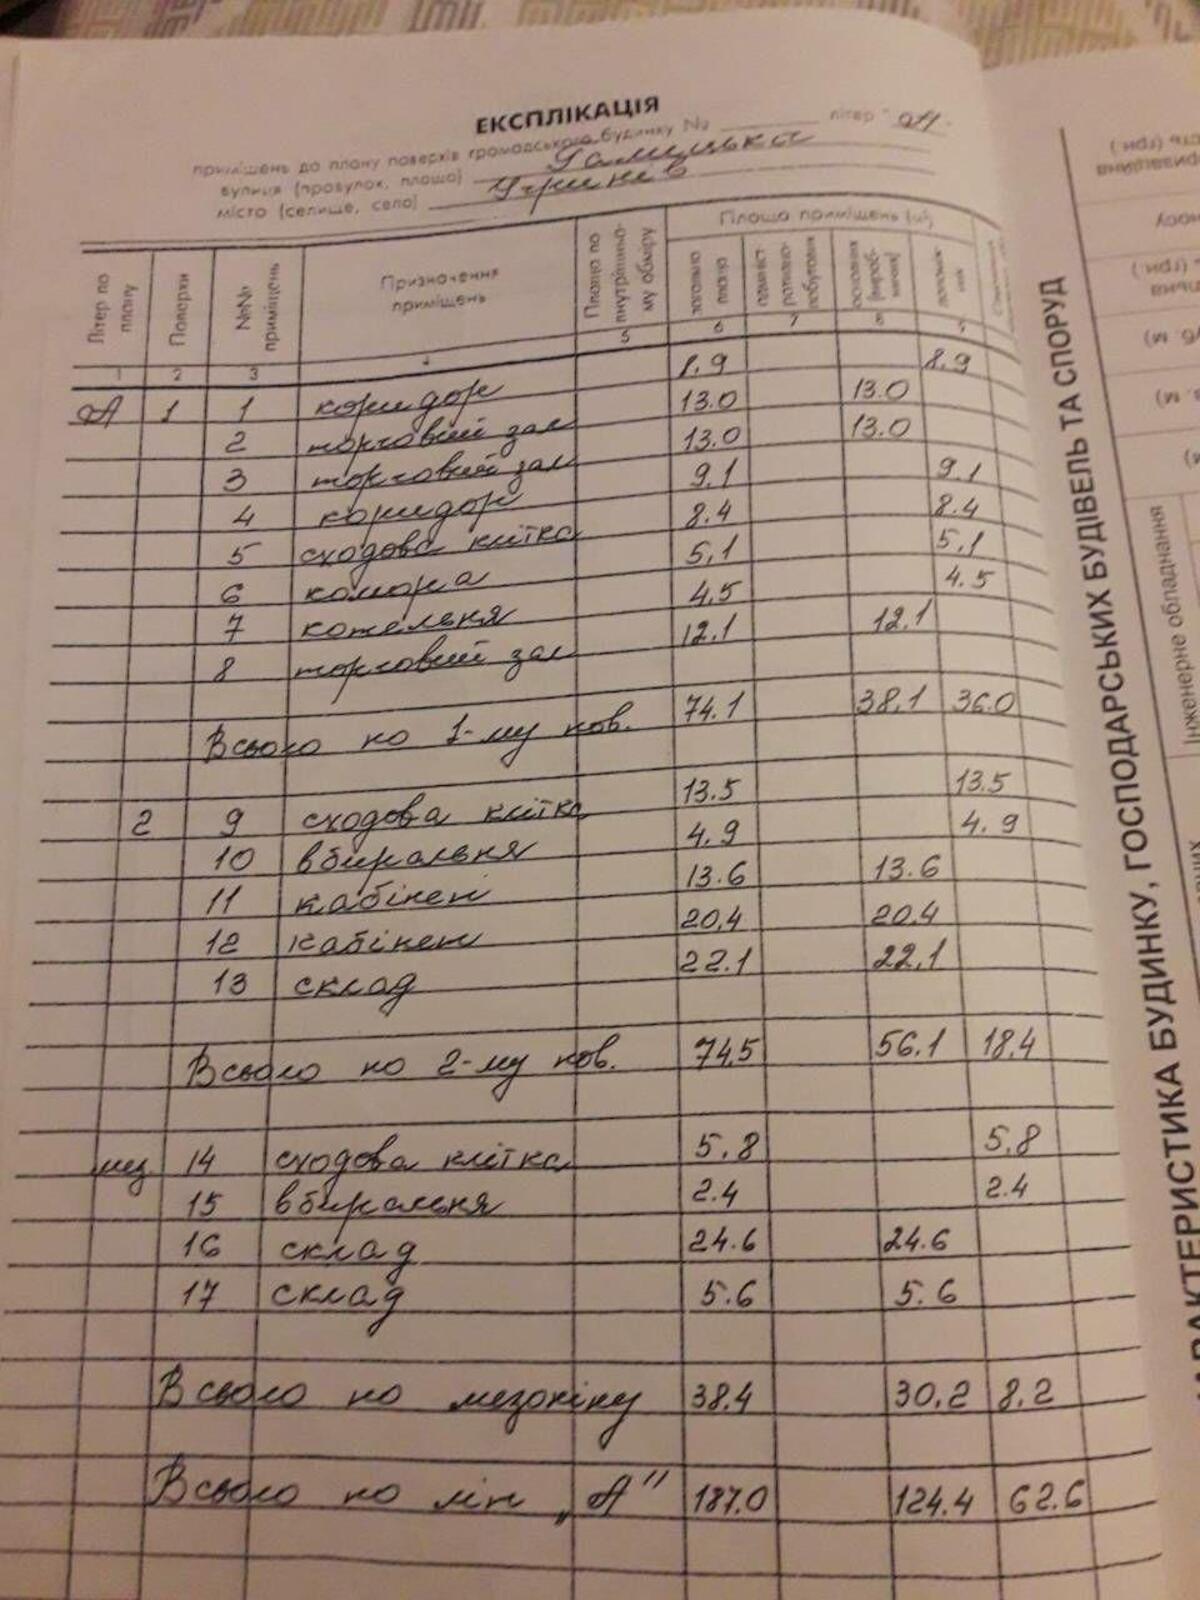 ЕКСПЛІКАЦІЯ
приміщень до плану поверхів громадського будинку № літер "А"
вулиця (провулок, площа) Галицька
місто (селище, село) Угринів
Літер по плану Поверхи №№ приміщень Призначення приміщень Площа по внутрішньому обміру Площа приміщень (м²)
1 2 3 4 5 6 7 8 9
А 1 1 коридор 8.9 8.9
2 торговий зал 13.0 13.0
3 торговий зал 13.0 13.0
4 коридор 9.1 9.1
5 сходова клітка 8.4 8.4
6 комора 5,1 5.1
7 котельня 4,5 4.5
8 торговий зал 12.1 12.1
Всього по 1-му пов. 74.1 38.1 36.0
2 9 сходова клітка 13.5 13.5
10 вбиральня 4.9 4.9
11 кабінет 13.6 13.6
12 кабінет 20,4 20.4
13 склад 22.1 22,1
Всього по 2-му пов. 74,5 56.1 18.4
мез. 14 сходова клітка 5.8 5.8
15 вбиральня 2.4 2.4
16 склад 24.6 24.6
17 склад 5.6 5.6
Всього по мезоніну 38.4 30.2 8.2
Всього по літ „А" 187.0 124.4 62.6
ХАРАКТЕРИСТИКА БУДИНКУ, ГОСПОДАРСЬКИХ БУДІВЕЛЬ ТА СПОРУД
Інженерне обладнання